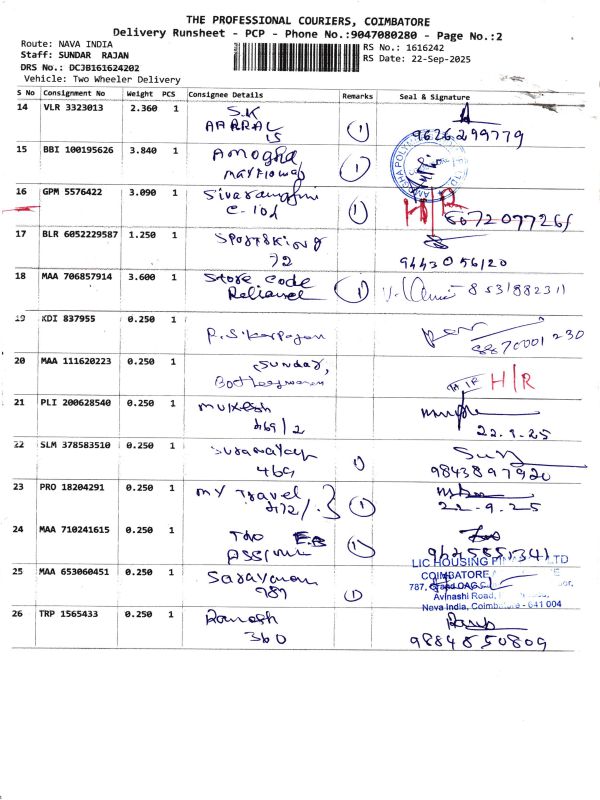 THE PROFESSIONAL COURIERS, COIMBATORE
Delivery Runsheet - PCP - Phone No.:9047080280 - Page No.:2
Route: NAVA INDIA
RS No.: 1616242
Staff: SUNDAR RAJAN
RS Date: 22-Sep-2025
DRS No.: DCJB161624202
Vehicle: Two Wheeler Delivery
S No Consignment No Weight PCS Consignee Details Remarks Seal & Signature
14 VLR 3323013 2.360 1 S.K 1
15 9626299779
15 BBI 100195626 3.840 1 Amogha 1
16 GPM 5576422 3.090 1 1 H/R
C-101
17 BLR 6052229587 1.250 1
72 9443056120
18 MAA 706857914 3.600 1 Store code 1 8531882311
Reliance
19 KDI 837955 0.250 1
8870001230
20 MAA 111620223 0.250 1 Sundar, H/R
21 PLI 200628540 0.250 1 Mukesh
469/2 22.9.25
22 SLM 378583510 0.250 1 1
469 9843897920
23 PRO 18204291 0.250 1 My Travel 1
472/.3 22.9.25
24 MAA 710241615 0.250 1 1
25 MAA 653060451 0.250 1 Saravanan 1
787
LIC HOUSING
COIMBATORE
787,
Avinashi Road,
Nava India, Coimbatore - 641 004
26 TRP 1565433 0.250 1 Ramesh
360 9884850809